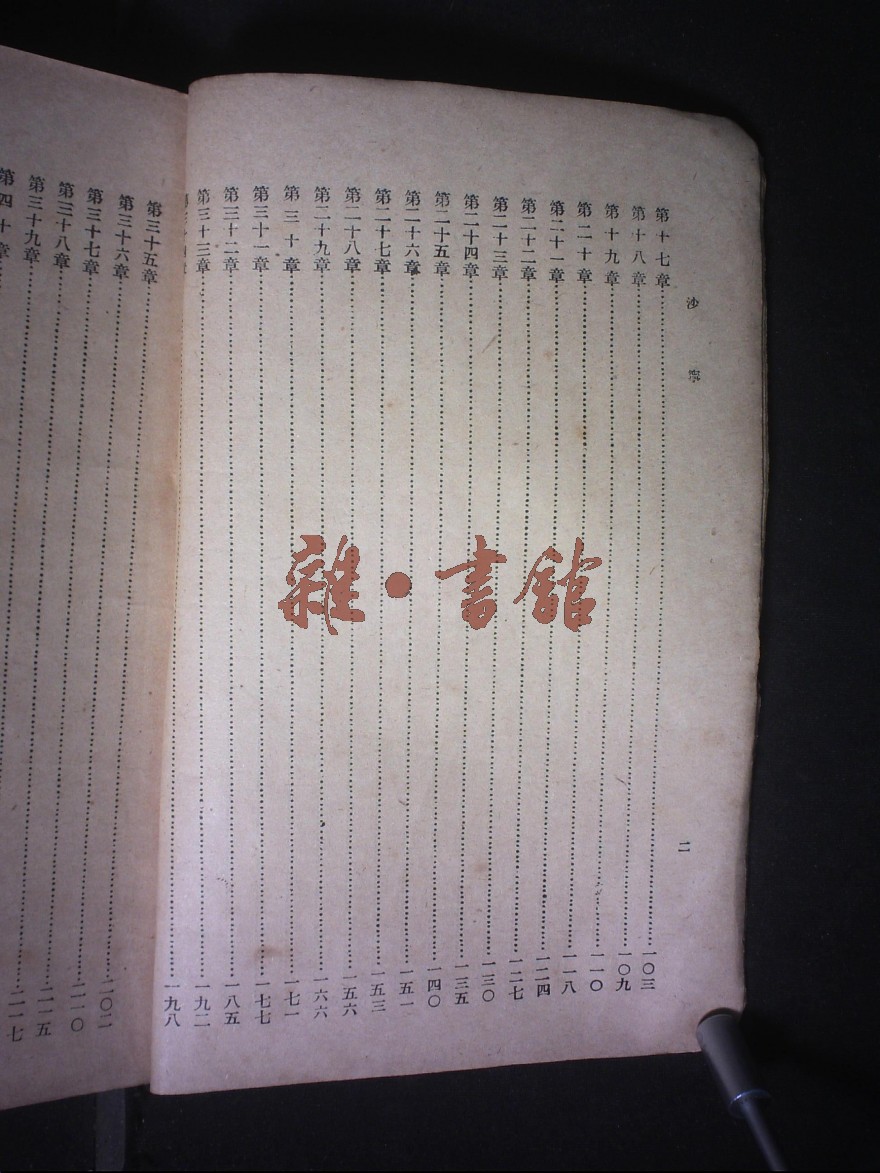 沙寧 二
第十七章……一〇三
第十八章……一〇九
第十九章……一一〇
第二十章……一一八
第二十一章……一二四
第二十二章……一二七
第二十三章……一三〇
第二十四章……一三五
第二十五章……一四〇
第二十六章……一五一
第二十七章……一五三
第二十八章……一五六
第二十九章……一六六
第三十章……一七一
第三十一章……一七七
第三十二章……一八五
第三十三章……一九二
第三十四章……一九八
第三十五章……二〇二
第三十六章……二一〇
第三十七章……二一五
第三十八章……二一七
第三十九章
第四十章
雜·書館